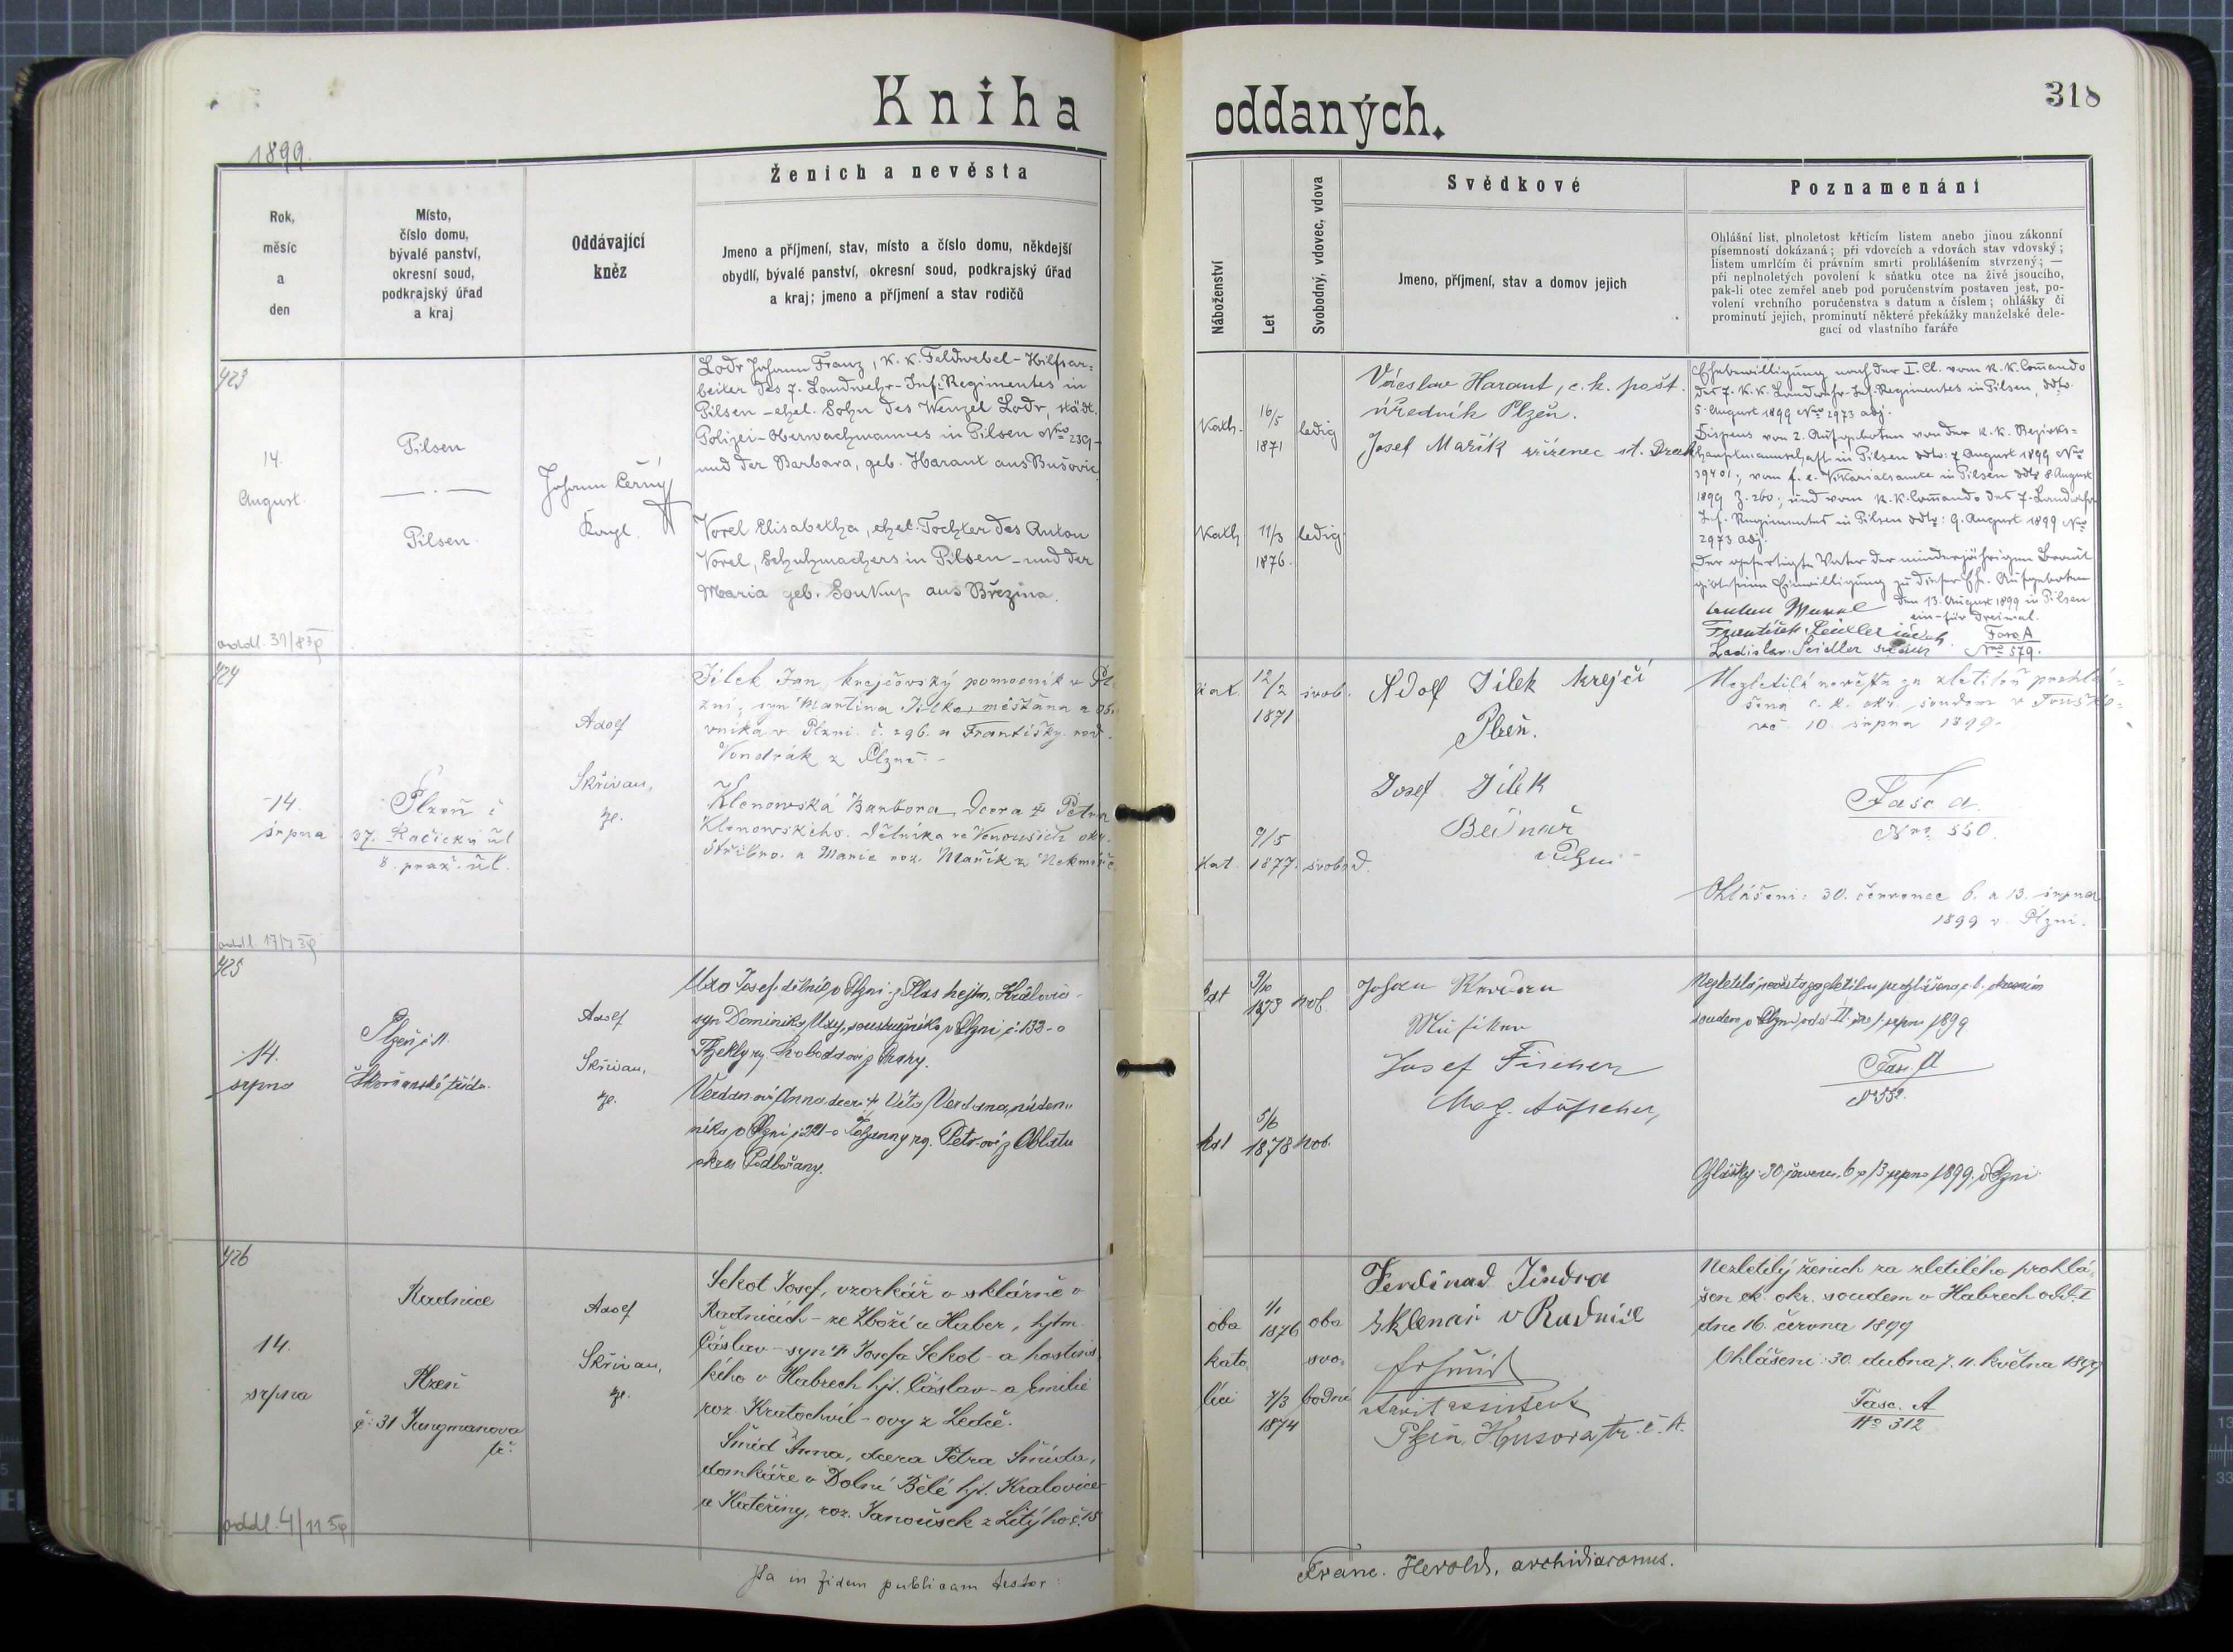 Kniha oddaných.
318
1899.
Rok,
měsíc
a
den
Místo,
číslo domu,
bývalé panství,
okresní soud,
podkrajský úřad
a kraj
Oddávající
kněz
Ženich a nevěsta
Jmeno a příjmení, stav, místo a číslo domu, někdejší
obydlí, bývalé panství, okresní soud, podkrajský úřad
a kraj; jmeno a příjmení a stav rodičů
Náboženství
Let
Svobodný, vdovec, vdova
Svědkové
Jmeno, příjmení, stav a domov jejich
Poznamenání
Ohlášní list, plnoletost křticím listem anebo jinou zákonní
písemností dokázaná; při vdovcích a vdovách stav vdovský;
listem umrlčím či právním smrti prohlášením stvrzený; —
při neplnoletých povolení k sňatku otce na živě jsoucího,
pak-li otec zemřel aneb pod poručenstvím postaven jest, po-
volení vrchního poručenstva s datum a číslem; ohlášky či
prominutí jejich, prominutí některé překážky manželské dele-
gací od vlastního faráře
423
14.
August
Pilsen
Pilsen.
Johann Černý
Kapl.
Lodr Johann Franz, K. K. Feldwebel-Hilfsar-
beiter des 7. Landwehr-Inf. Regimentes in
Pilsen - ehel. Sohn des Wenzel Lodr, städt.
Polizei-Oberwachmannes in Pilsen Nro 239 -
und der Barbara, geb. Harant aus Bušovic
Vorel Elisabetha, ehel. Tochter des Anton
Vorel, Schuhmachers in Pilsen - und der
Maria geb. Soukup aus Březina.
Kath. 16/5 1871 ledig
Kath. 11/3 1876. ledig
Václav Harant, c. k. pošt.
úředník Plzeň.
Josef Mařík zřízenec st. drah
Ehebewilligung nach der I. Cl. vom K. K. Comando
des 7. K. K. Landwehr-Inf. Regimentes in Pilsen, ddto.
5. August 1899 Nro 2973 adj.
Dispens von 2. Aufgeboten von der K. K. Bezirks-
hauptmannschaft in Pilsen ddto: 7 August 1899 Nro
39401; vom f. e. Vikariatsamte in Pilsen ddto 8. August
1899 Z. 260; und vom K. K. Comando des 7. Landwehr
Inf. Regimentes in Pilsen ddto: 9. August 1899 Nro
2973 adj.
Der gefertigte Vater der minderjährigen Braut
gibt seine Einwilligung zu dieser Ehe. Aufgeboten
den 13. August 1899 in Pilsen
ein-für dreimal.
Fasc A
Nro 579.
Ladislav Seidler
oddl. 31/8 39
424
14.
srpna
Plzeň č
37.
8. praž. ul.
Adolf
Skřivan,
Jílek Jan, krejčovský pomocník v Pl-
zni, syn Martina Jílka, měšťana a ob-
v Plzni č. 296. a Františky roz.
Vondrák z Plzně.
Klenowská Barbora, dcera Petra
Klenowského, dělníka ve Venousích okr.
Stříbro. a Marie roz. Mařík z
kat. 12/2 1871 svob.
kat. 9/5 1877. svobod.
Adolf Jílek krejčí
Plzeň.
Josef Jílek
Bednář
v Plzni
Nezletilá nevěsta za zletilou prohlá-
šena c. k. okr. soudem v Touško-
vě 10. srpna 1899.
Fasc a
Nro. 550.
Ohlášení: 30. červenec 6. a 13. srpna
1899 v Plzni.
oddl. 17/7 39
425
14.
srpna
Plzeň
Skvrňanská třída.
Adolf
Skřivan,
Josef, dělník v Plzni z Plas hejtm. Kralovic-
syn Dominika v Plzni č. 132 - a
Thekly roz. Svobodovi z Prahy.
Anna dcera Víta
v Plzni č. 221 - a Johanny roz. z
okres Podbořany.
kat 9/10 1873 svob.
kat 5/6 1878 svob.
Johan
Musiker
Josef Fischer
Mag. Aufseher,
Nezletilá nevěsta za zletilou prohlášena c. k. okresním
soudem v Plzni odd II. srpna 1899
Fasc. A
No 552.
Ohlášky: 30 července, 6 a 13 srpna 1899, v Plzni.
426
14.
srpna
Radnice
Plzeň
č: 31 Jungmanova
tř:
Adolf
Skřivan,
Sekot Josef, vzorkář v sklárně v
Radnicích - ze Zboží u Haber, hjtm.
Čáslav - syn Josefa Sekot - a hostins-
kého v Habrech hjt. Čáslav - a Emilie
roz. Kratochvíl-ovy z Ledče.
Šmíd Anna, dcera Petra Šmída,
domkáře v Dolní Bělé hjt. Kralovice
a Kateřiny, roz. Janoušek z
oba 1/1 1876 oba
kato- svo-
líci 7/3 1874 bodní
Ferdinad Jindra
Sklenař v Radnice
Plzeň, Husova tř. č.
Nezletilý ženich za zletilého prohlá-
šen ck. okr. soudem v Habrech odd. I
dne 16. června 1899
Ohlášeni: 30. dubna, 7. 11. května 1899
Fasc. A
No 312
oddl. 4/11 59
Ita in fidem publicam testor:
Franc. Herold, archidiaconus.